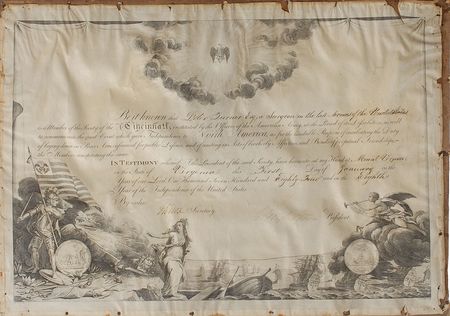 Be it known that Peter Turner Esq. a Surgeon in the late
is a Member of the Society of the Cincinnati, instituted by the Officers of the American Army, at the Period of its Dissolution, as well
to commemorate the great Event which gave Independence to North America, as for the laudable Purpose of inculcating the Duty
of laying down in Peace Arms assumed for public Defence, and of uniting in Acts of brotherly Affection and Bonds of perpetual Friendship
the Members constituting the same.
IN TESTIMONY whereof I, the President of the said Society, have hereunto set my Hand at Mount Vernon
in the State of Virginia this First Day of January in the
Year of our Lord One Thousand Seven Hundred and Eighty Five and in the
Year of the Independence of the United States.
By order,
Secretary.
President.